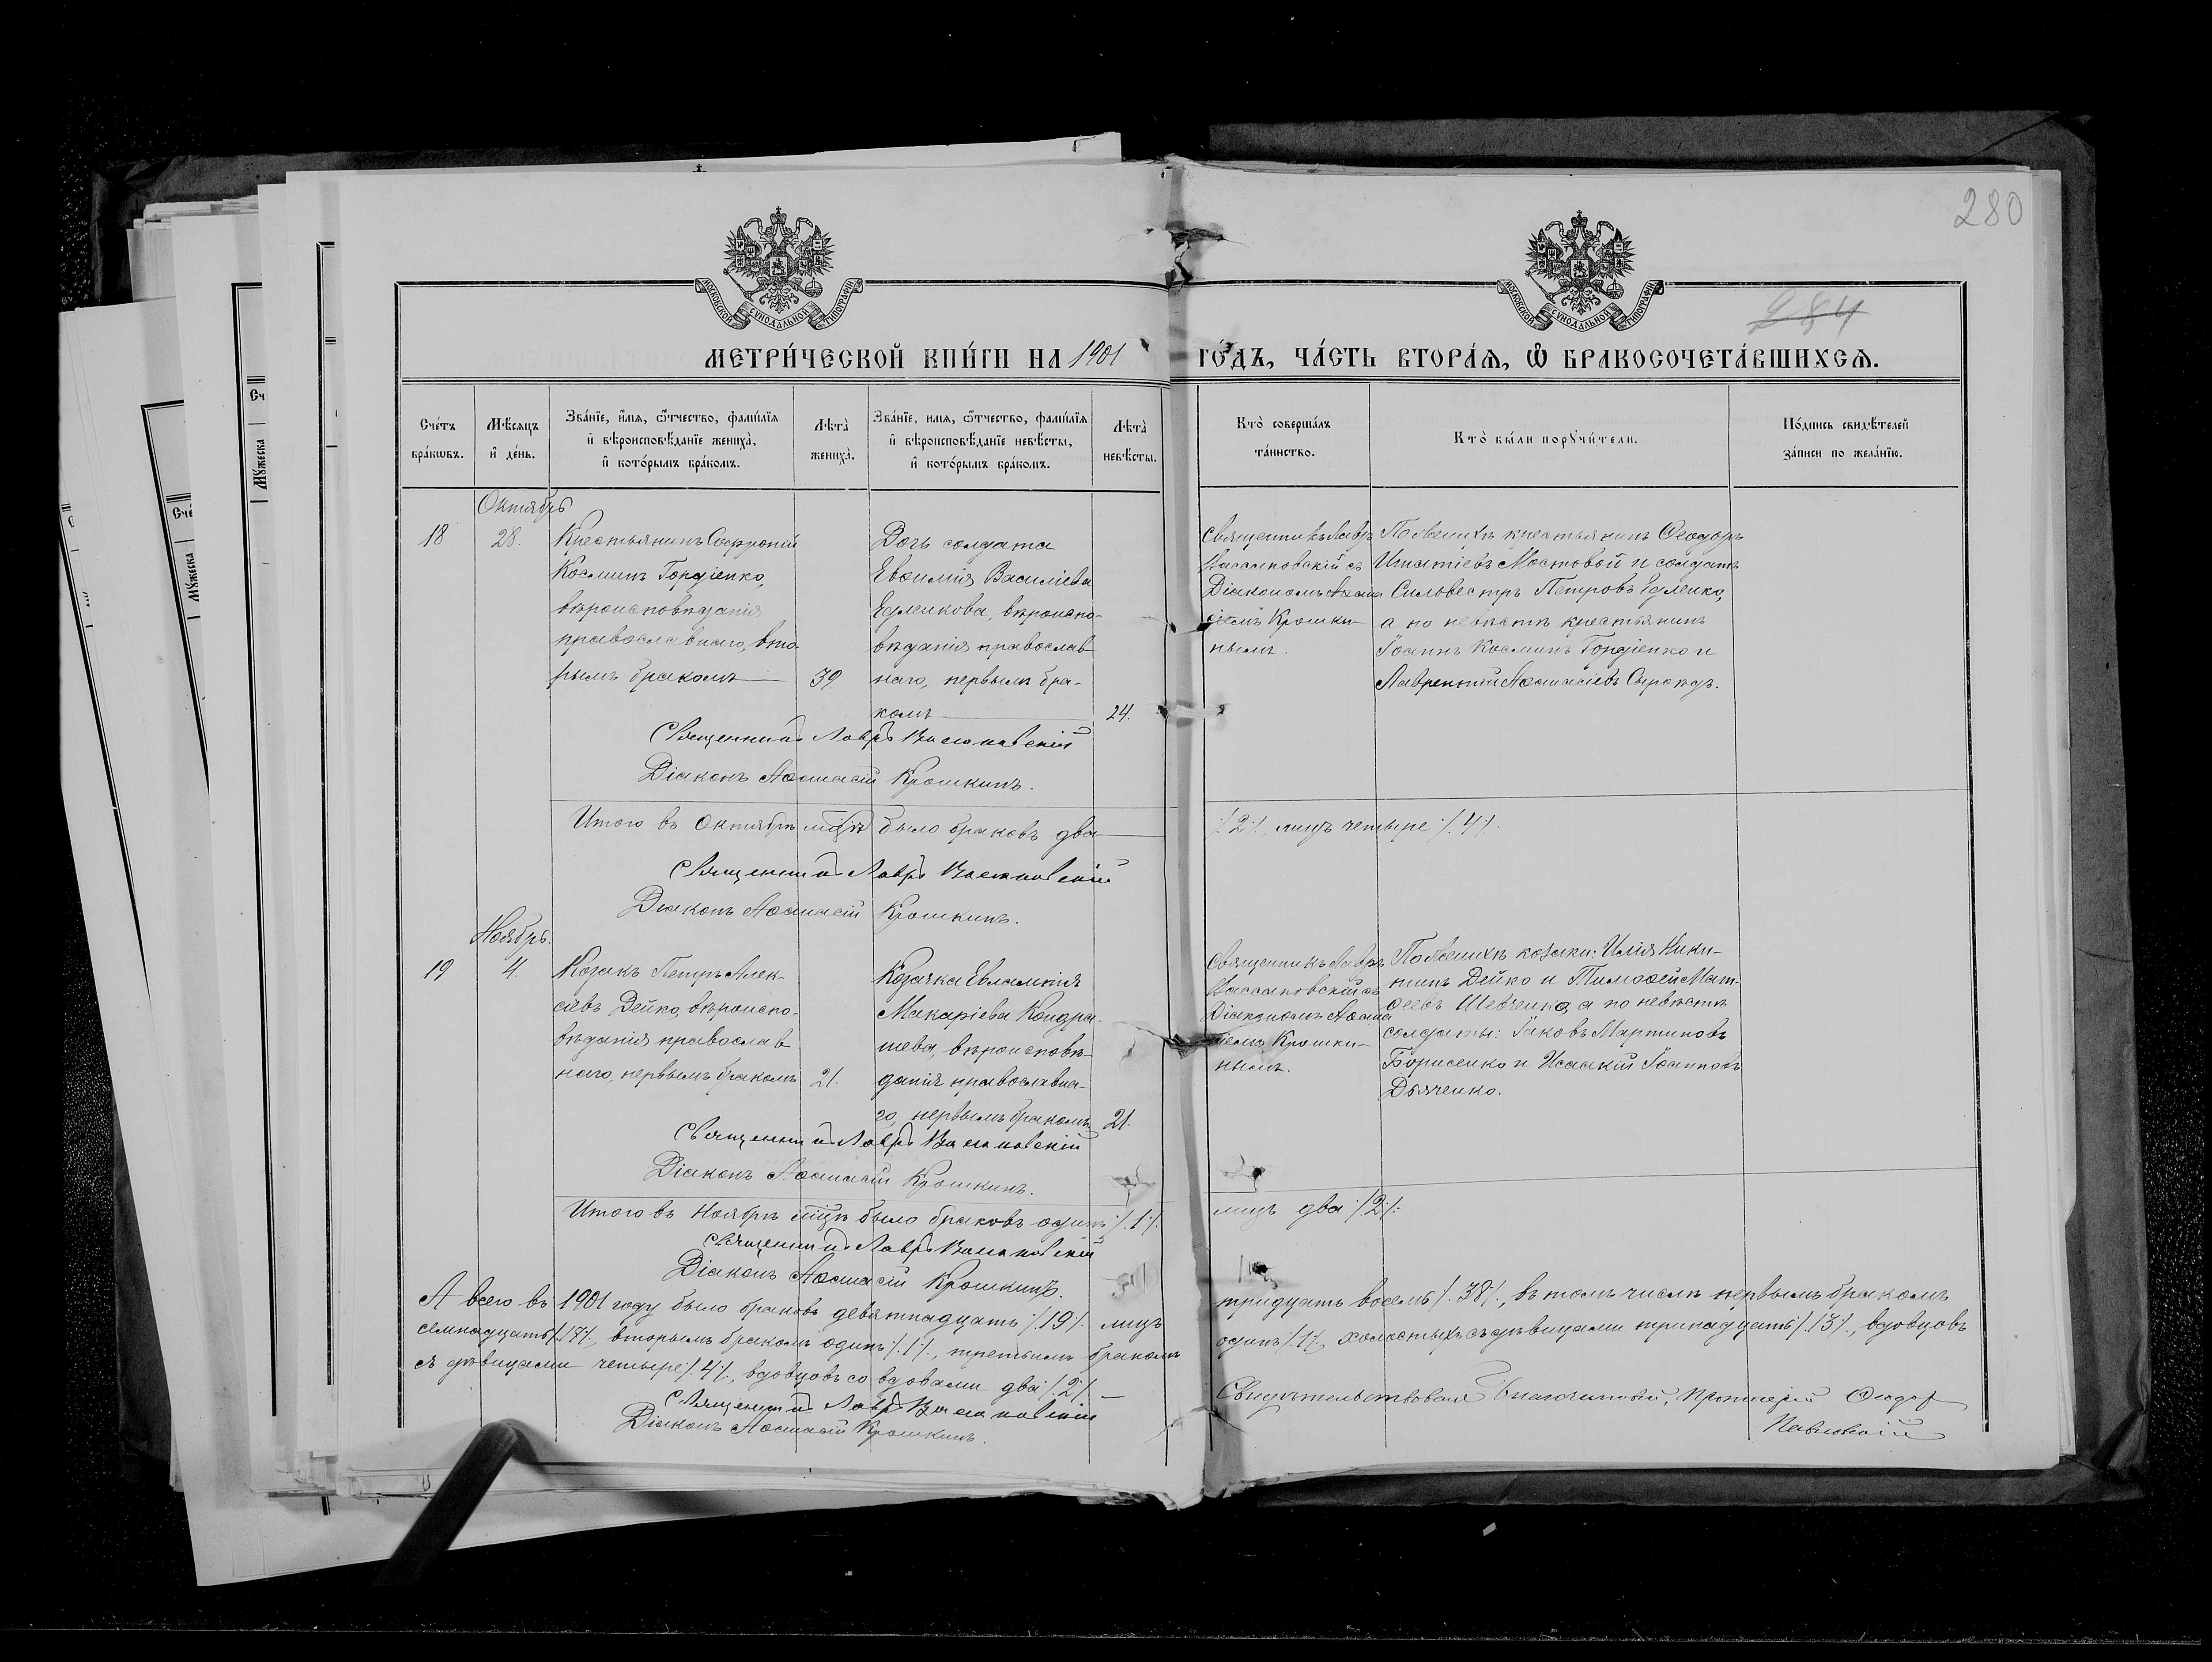 280
284
МОСКОВСКОЙ СѴНОДАЛЬНОЙ ТИПОГРАФІИ
МОСКОВСКОЙ СѴНОДАЛЬНОЙ ТИПОГРАФІИ
МЕТРИ́ЧЕСКОЙ КНИ́ГИ НА 1901 ГО́ДЪ, ЧА́СТЬ ВТОРА́Я, Ѡ БРАКОСОЧЕТА́ВШИХСЯ.
Сче́тъ
бра́кѡвъ.
Мѣ́сяцъ
и де́нь.
Зва́нїе, и́мя, ѻ҆́тчество, фами́лїя
и҆ вѣроисповѣ́данїе жениха̀,
и҆ кото́рымъ бра́комъ.
Лѣта̀
жениха̀.
Зва́нїе, имя, ѻ҆́тчество, фами́лїя
и҆ вѣроисповѣ́данїе невѣ́сты,
и҆ кото́рымъ бра́комъ.
Лѣта̀
невѣ́сты.
Кто̀ соверша́лъ
та́инство.
Кто̀ бы́ли порꙋчи́тели.
По́дпись свидѣ́телей
за́писи по жела́нїю.
Октябрь
18
28.
Крестьянинъ Софроній
Косминъ Гордіенко,
вѣроисповѣданія
православнаго, вто
рымъ бракомъ
39
Дочь солдата
Евѳимія Василіева
Едленкова, вѣроиспо-
вѣданія православ
наго, первымъ бра-
комъ
24.
Священникъ Лавръ
Вассаковскій съ
Діакономъ Аѳана
сіемъ Крошки-
нымъ.
По женихѣ крестьянинъ Ѳеодоръ
Игнатіевъ Мостовой и солдатъ
Сильвестръ Петровъ Едленко,
а по невѣстѣ крестьянинъ
Іоаннъ Косминъ Гордіенко и
Лаврентій Аѳанасіевъ Сыроѣдъ.
Священникъ Лавръ Вассаковскій
Діаконъ Аѳанасій Крошкинъ.
Итого въ Октябрѣ мцѣ было браковъ два
/.2./. лицъ четыре /.4./.
Священникъ Лавръ Вассаковскій
Діаконъ Аѳанасій Крошкинъ.
Ноябрь.
19
4.
Козакъ Петръ Алек-
сіевъ Дейко, вѣроиспо-
вѣданія православ
наго, первымъ бракомъ
21.
Козачка Евлампія
Макаріева Кондра-
шева, вѣроисповѣ-
данія православна-
го, первымъ бракомъ
21.
Священникъ Лавръ
Вассаковскій съ
Діакономъ Аѳана
сіемъ Крошки-
нымъ.
По женихѣ козаки: Илія Ники-
тинъ Дейко и Тимоѳей Мат-
ѳеевъ Шевченко, а по невѣстѣ
солдаты: Іаковъ Мартиновъ
Борисенко и Исаакій Іоанновъ
Дьяченко.
Священникъ Лавръ Вассаковскій
Діаконъ Аѳанасій Крошкинъ.
Итого въ Ноябрѣ мцѣ было браковъ одинъ /.1./.
лицъ два /.2./.
Священникъ Лавръ Вассаковскій
Діаконъ Аѳанасій Крошкинъ.
А всего въ 1901 году было браковъ девятнадцать /.19./. лицъ
тридцать восемь /.38./., въ томъ числѣ первымъ бракомъ
семнадцать /.17./., вторымъ бракомъ одинъ /.1./., третьимъ бракомъ
одинъ /.1./., холостыхъ съ дѣвицами тринадцать /.13./., вдовцовъ
съ дѣвицами четыре /.4./., вдовцовъ со вдовами два /.2./.
Священникъ Лавръ Вассаковскій
Діаконъ Аѳанасій Крошкинъ.
Свидѣтельствовалъ Благочинный, Протоіерей Ѳеодоръ
Павловскій
Сч
Мꙋжеска
Сче
Мꙋжеска